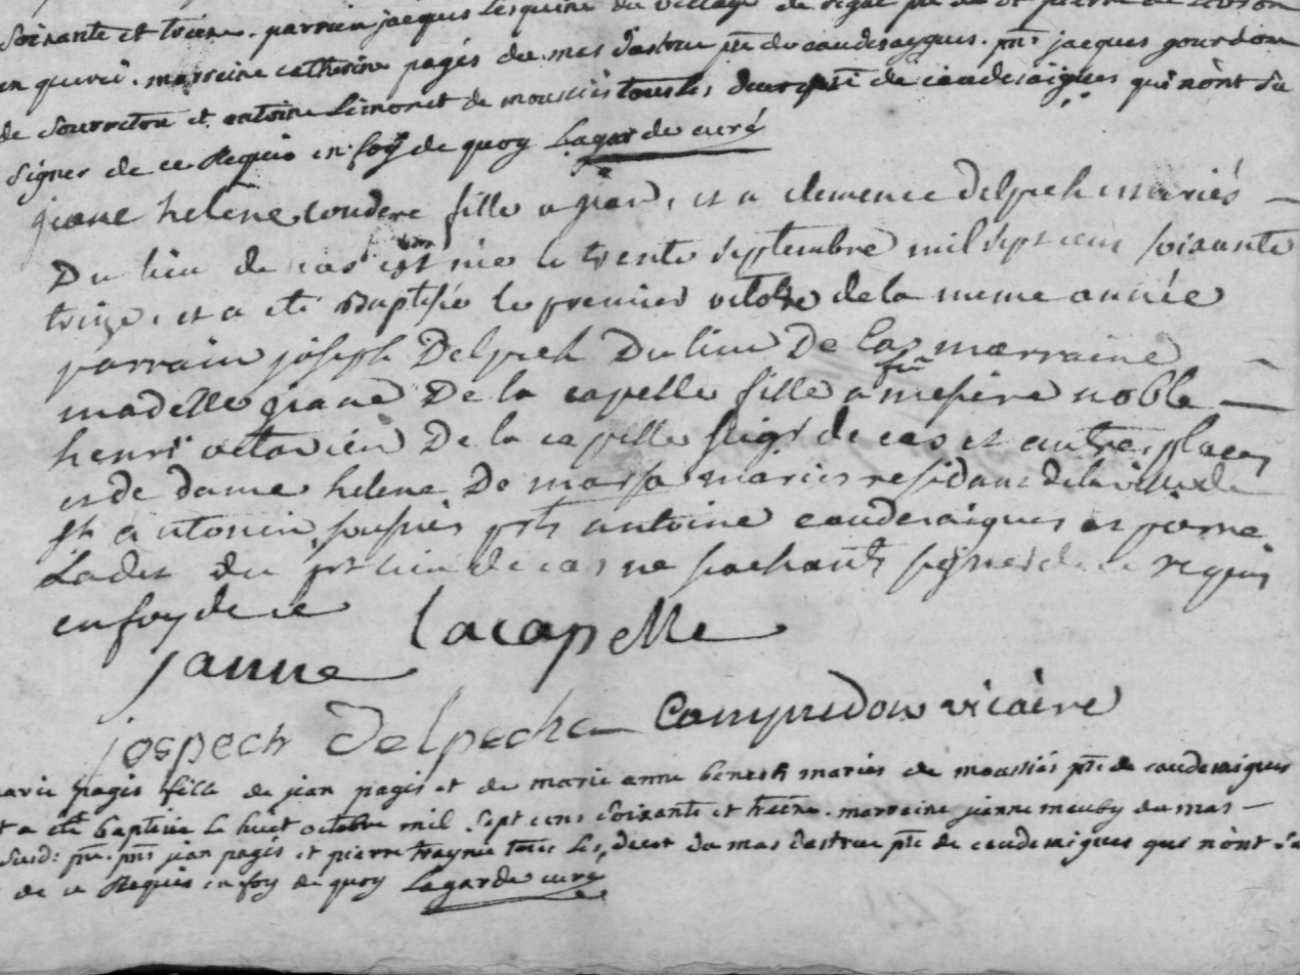 soixante et treize. parrain jacques Lesquine du village de
en querci. marreine catherine pagés du mas dastru pñe de caudesaygues. pñs jacques gourdon
de Sourneton et antoine Limonet de moussiés tous les deux pñe de caudesaigues qui n'ont su
signer de ce Requis en foy de quoy Lagarde curé
jeane helene Couderc fille a jean, et a clemence Delpech mariés —
Du lieu de cas est née le trente septembre mil sept cens soixante
treize, et a eté Baptisée le premier octobre de la meme année
parrain joseph Delpech Du lieu De Cas marraine —
madelle jeane De la capelle fille a feu messire noble —
henri octavien De la capelle seigr de cas et autres places
et de dame helene De marsa mariés residans de la ville de
st antonin, presens pñts antoine caudesaigues et pierre
Ladet du pñt lieu de cas ne sachants signer de ce requis
en foy de ce
janne Lacapelle
jospech Delpeche Campredon vicaire
marie pagés fille de jean pagés et de marie anne benech mariés de moussiés pñe de caudesaigues
et a eté baptisée le huit octobre mil sept cens soixante et treize. marreine jeanne meuby du mas —
susd: pñe. pñs jean pagés et pierre traynié tous les deux du mas dastrue pñe de caudesaigues qui n'ont su
de ce Requis en foy de quoy Lagarde curé